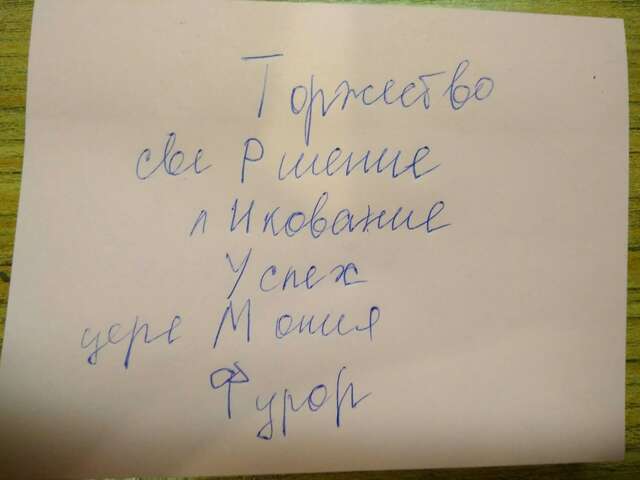 Торжество
све Ршение
л Икование
Успех
цере Мония
Фурор